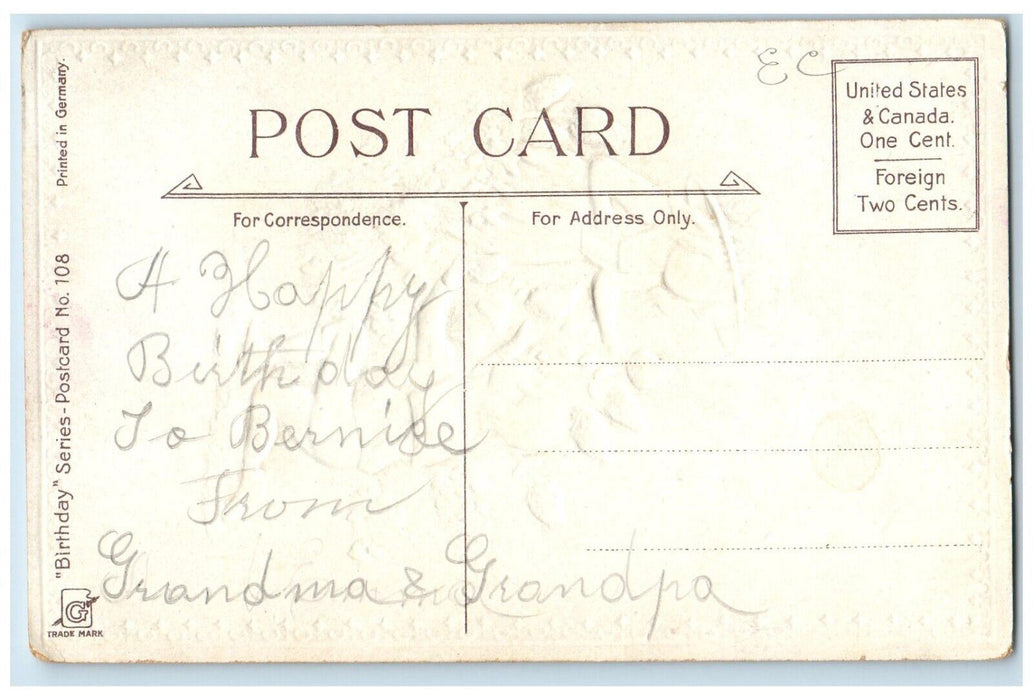 EC
POST CARD
United States
& Canada.
One Cent.
Foreign
Two Cents.
For Correspondence.
For Address Only.
A Happy
Birthday
To Bernice
From
Grandma & Grandpa
Printed in Germany.
"Birthday" Series - Postcard No. 108
G
TRADE MARK